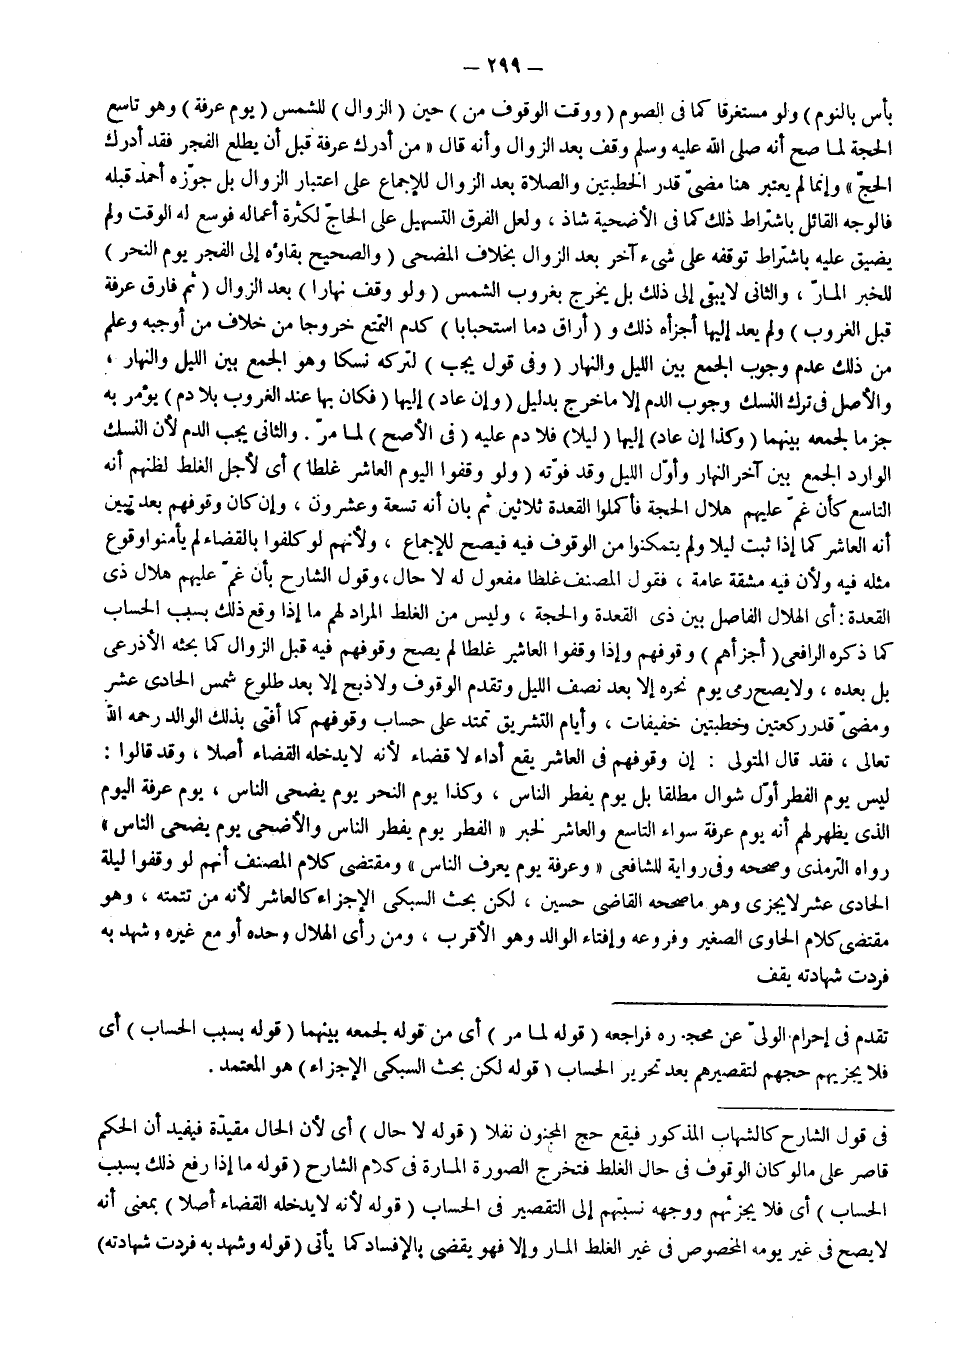 – ٢٩٩ –
بأس بالنوم ) ولو مستغرقا كما فى الصوم ( ووقت الوقوف من ) حين ( الزوال ) للشمس ( يوم عرفة ) وهو تاسع
الحجة لما صح أنه صلى الله عليه وسلم وقف بعد الزوال وأنه قال « من أدرك عرفة قبل أن يطلع الفجر فقد أدرك
الحجّ » وإنما لم يعتبر هنا مضىّ قدر الخطبتين والصلاة بعد الزوال للإجماع على اعتبار الزوال بل جوّزه أحمد قبله
فالوجه القائل باشتراط ذلك كما فى الأضحية شاذ ، ولعل الفرق التسهيل على الحاجّ لكثرة أعماله فوسع له الوقت ولم
يضيق عليه باشتراط توقفه على شىء آخر بعد الزوال بخلاف المضحى ( والصحيح بقاؤه إلى الفجر يوم النحر )
للخبر المارّ ، والثانى لايبقى إلى ذلك بل يخرج بغروب الشمس ( ولو وقف نهارا ) بعد الزوال ( ثم فارق عرفة
قبل الغروب ) ولم يعد إليها أجزأه ذلك و ( أراق دما استحبابا ) كدم التمتع خروجا من خلاف من أوجبه وعلم
من ذلك عدم وجوب الجمع بين الليل والنهار ( وفى قول يجب ) لتركه نسكا وهو الجمع بين الليل والنهار ،
والأصل فى ترك النسك وجوب الدم إلا ماخرج بدليل ( وإن عاد ) إليها ( فكان بها عند الغروب بلا دم ) يؤمر به
جزما لجمعه بينهما ( وكذا إن عاد) إليها ( ليلا) فلا دم عليه ( فى الأصح ) لما مرّ . والثانى يجب الدم لأن النسك
الوارد الجمع بين آخر النهار وأوّل الليل وقد فوّته ( ولو وقفوا اليوم العاشر غلطا ) أى لأجل الغلط لظنهم أنه
التاسع كأن غمّ عليهم هلال الحجة فأكملوا القعدة ثلاثين ثم بان أنه تسعة وعشرون ، وإن كان وقوفهم بعد تبين
أنه العاشر كما إذا ثبت ليلا ولم يتمكنوا من الوقوف فيه فيصح للإجماع ، ولأنهم لو كلفوا بالقضاء لم يأمنوا وقوع
مثله فيه ولأن فيه مشقة عامة ، فقول المصنف غلطا مفعول له لا حال، وقول الشارح بأن غمّ عليهم هلال ذى
القعدة : أى الهلال الفاصل بين ذى القعدة والحجة ، وليس من الغلط المراد لهم ما إذا وقع ذلك بسبب الحساب
كما ذكره الرافعى ( أجزأهم ) وقوفهم وإذا وقفوا العاشر غلطا لم يصح وقوفهم فيه قبل الزوال كما بحثه الأذرعى
بل بعده ، ولايصح رمى يوم نحره إلا بعد نصف الليل وتقدم الوقوف ولاذبح إلا بعد طلوع شمس الحادى عشر
ومضىّ قدر ركعتين وخطبتين خفيفات ، وأيام التشريق تمتد على حساب وقوفهم كما أفتى بذلك الوالد رحمه الله
تعالى ، فقد قال المتولى : إن وقوفهم فى العاشر يقع أداء لا قضاء لأنه لايدخله القضاء أصلا ، وقد قالوا :
ليس يوم الفطر أوّل شوال مطلقا بل يوم يفطر الناس ، وكذا يوم النحر يوم يضحى الناس ، يوم عرفة اليوم
الذى يظهر لهم أنه يوم عرفة سواء التاسع والعاشر لخبر « الفطر يوم يفطر الناس والأضحى يوم يضحى الناس »
رواه الترمذى وصححه وفى رواية للشافعى « وعرفة يوم يعرف الناس » ومقتضى كلام المصنف أنهم لو وقفوا ليلة
الحادى عشر لايجزى وهو ماصححه القاضى حسين ، لكن بحث السبكى الإجزاء كالعاشر لأنه من تتمته ، وهو
مقتضى كلام الحاوى الصغير وفروعه وإفتاء الوالد وهو الأقرب ، ومن رأى الهلال وحده أو مع غيره وشهد به
فردت شهادته يقف
تقدم فى إحرام الولىّ عن محجوره فراجعه ( قوله لما مر ) أى من قوله لجمعه بينهما ( قوله بسبب الحساب ) أى
فلا يجزيهم حجهم لتقصيرهم بعد تحرير الحساب ( قوله لكن بحث السبكى الإجزاء ) هو المعتمد .
فى قول الشارح كالشهاب المذكور فيقع حج المجنون نفلا ( قوله لا حال ) أى لأن الحال مقيدة فيفيد أن الحكم
قاصر على مالو كان الوقوف فى حال الغلط فتخرج الصورة المارة فى كلام الشارح ( قوله ما إذا رفع ذلك بسبب
الحساب ) أى فلا يجزئهم ووجهه نسبتهم إلى التقصير فى الحساب ( قوله لأنه لايدخله القضاء أصلا ) بمعنى أنه
لايصح فى غير يومه المخصوص فى غير الغلط المار وإلا فهو يقضى بالإفساد كما يأتى ( قوله وشهد به فردت شهادته)